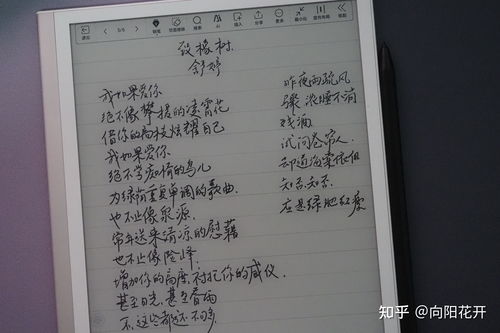 退出
5/5
钢笔
搜索
AI
插入
分享
更多
致橡树
舒婷
我如果爱你
绝不像攀援的凌霄花
借你的高枝炫耀自己
我如果爱你
绝不学痴情的鸟儿
为绿荫重复单调的歌曲.
也不止像泉源.
常年送来清凉的慰藉
也不止像险峰.
增加你的高度,衬托你的威仪.
甚至日光,甚至春雨
不,这些都还不够
昨夜雨疏风
骤 浓睡不消
残酒
试问卷帘人.
却道海棠依旧
知否,知否.
应是绿肥红瘦
知乎 @向阳花开